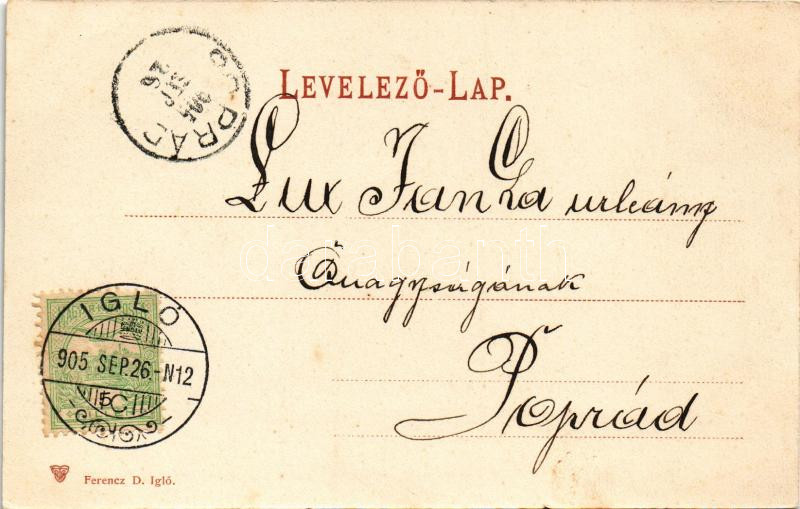 LEVELEZŐ-LAP.
POPRÁD
905 SEP 26
Lux Janka urleány
Őnagyságának
Poprád
IGLÓ
905 SEP. 26-N12
5C
Ferencz D. Igló.
darabanth